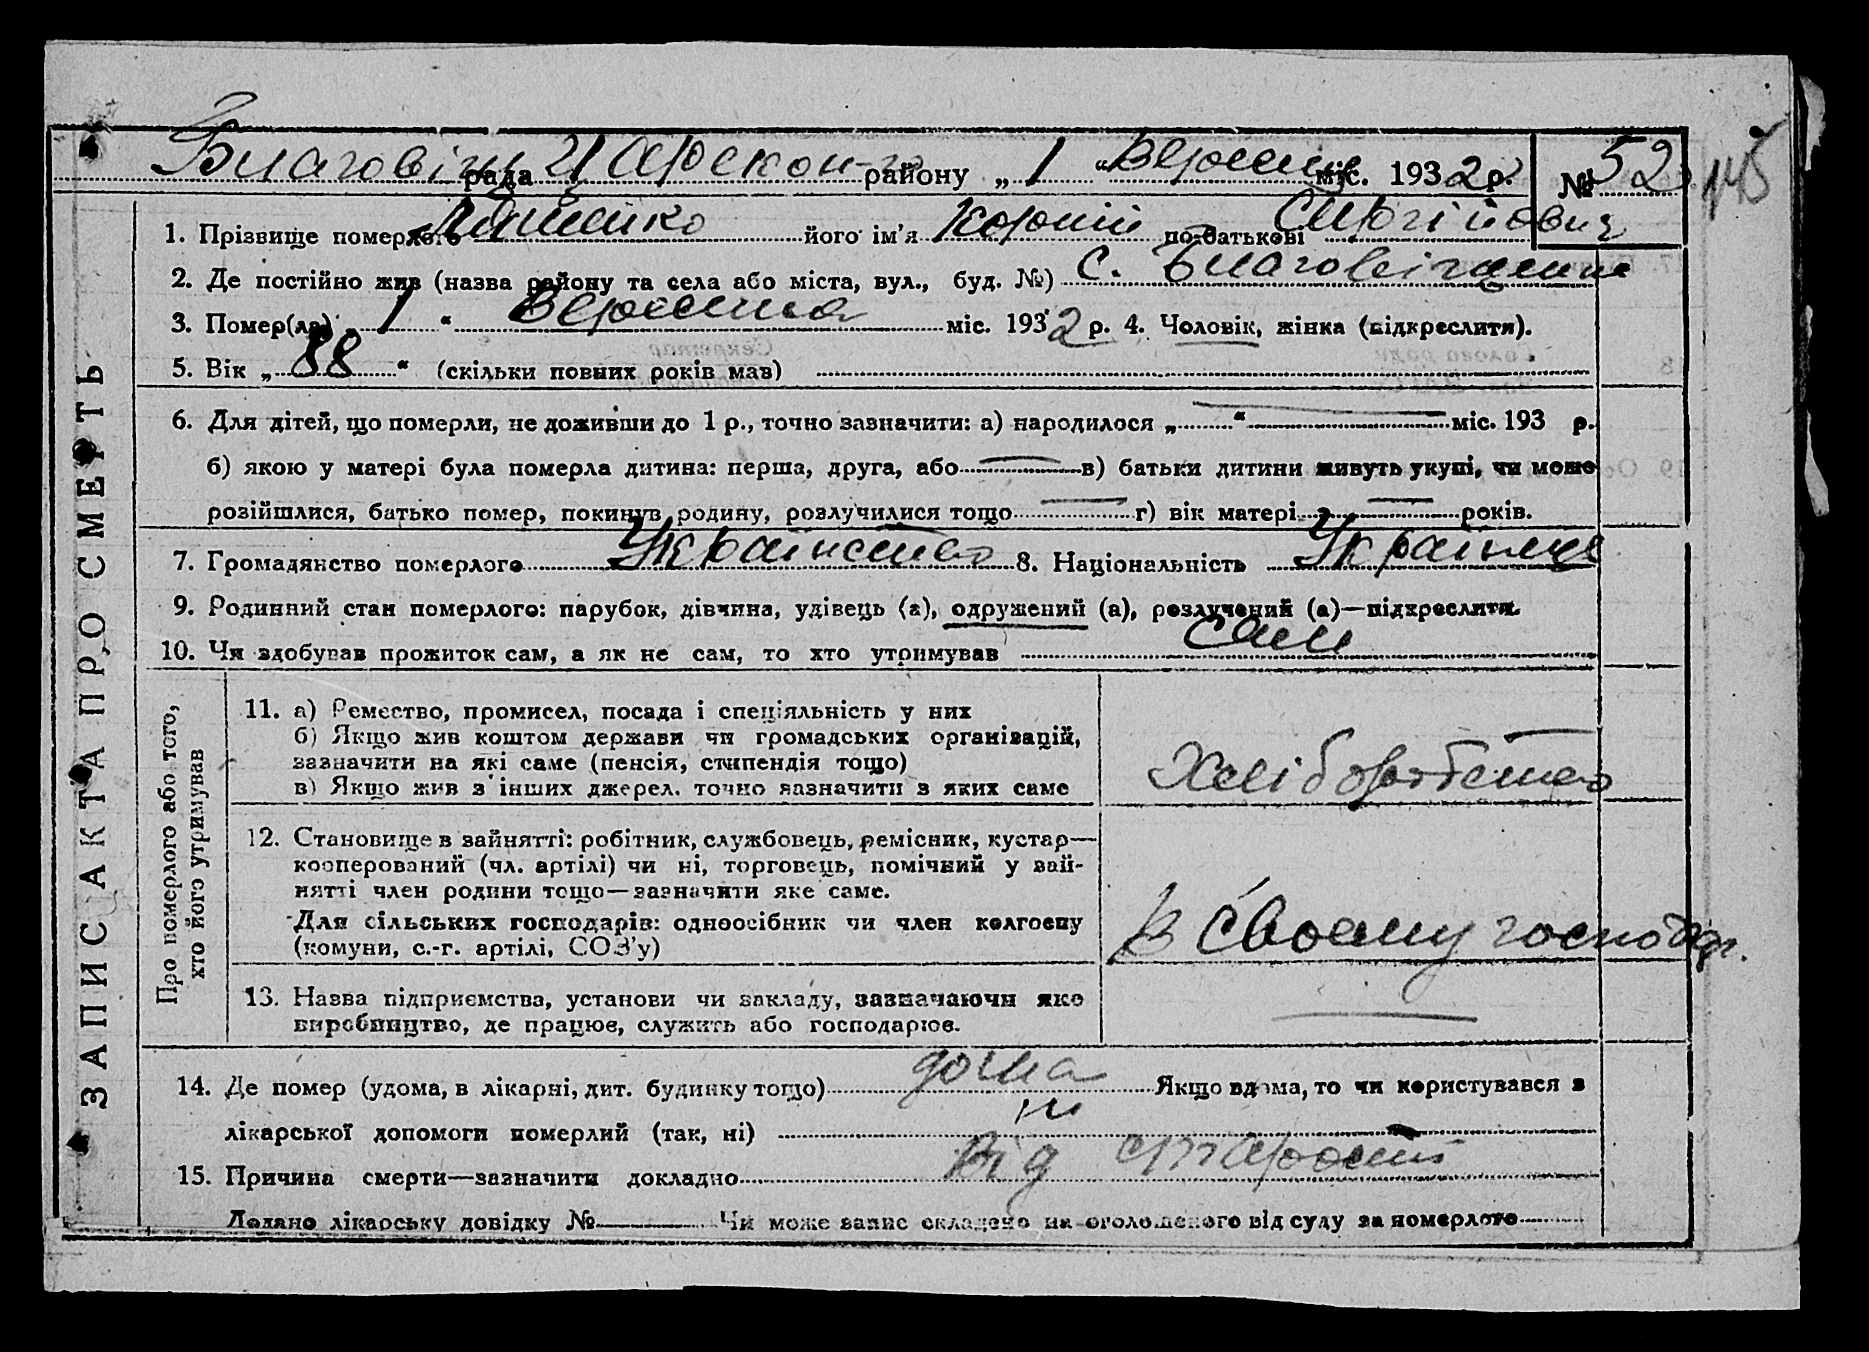 Благовіщ рада Царекон-го району „ 1 “ Вересня міс. 1932 р. № 52 145
1. Прізвище померлого Ляшенко його ім'я Корній по-батькові Сергійович
2. Де постійно жив (назва району та села або міста, вул., буд. №) с. Благовіщення
3. Помер(ла) „ 1 “ Вересня міс. 1932 р. 4. Чоловік, жінка (підкреслити).
5. Вік „ 88 “ (скільки повних років мав)
6. Для дітей, що померли, не доживши до 1 р., точно зазначити: а) народилося „ — “ — міс. 193 р.
б) якою у матері була померла дитина: перша, друга, або — в) батьки дитини живуть укупі, чи може
розійшлися, батько помер, покинув родину, розлучилися тощо — г) вік матері — років.
7. Громадянство померлого Українство 8. Національність Українець
9. Родинний стан померлого: парубок, дівчина, удівець (а), одружений (а), розлучений (а)—підкреслити.
10. Чи здобував прожиток сам, а як не сам, то хто утримував сам
ЗАПИС АКТА ПРО СМЕРТЬ
Про померлого або того,
хто його утримував
11. а) Ремество, промисел, посада і спеціяльність у них
б) Якщо жив коштом держави чи громадських організацій,
зазначити на які саме (пенсія, стипендія тощо)
в) Якщо жив з інших джерел, точно зазначити з яких саме
Хліборобство
12. Становище в зайнятті: робітник, службовець, ремісник, кустар—
кооперований (чл. артілі) чи ні, торговець, помічний у зай-
нятті член родини тощо—зазначити яке саме.
Для сільських господарів: одноосібник чи член колгоспу
(комуни, с.-г. артілі, СОЗ'у)
В своему господар.
13. Назва підприємства, установи чи закладу, зазначаючи яке
виробництво, де працює, служить або господарює.
—
14. Де помер (удома, в лікарні, дит. будинку тощо) дома Якщо вдома, то чи користувався з
лікарської допомоги померлий (так, ні) ні
15. Причина смерти—зазначити докладно Від старости
Додано лікарську довідку № Чи може запис складено на оголошеного від суду за померлого